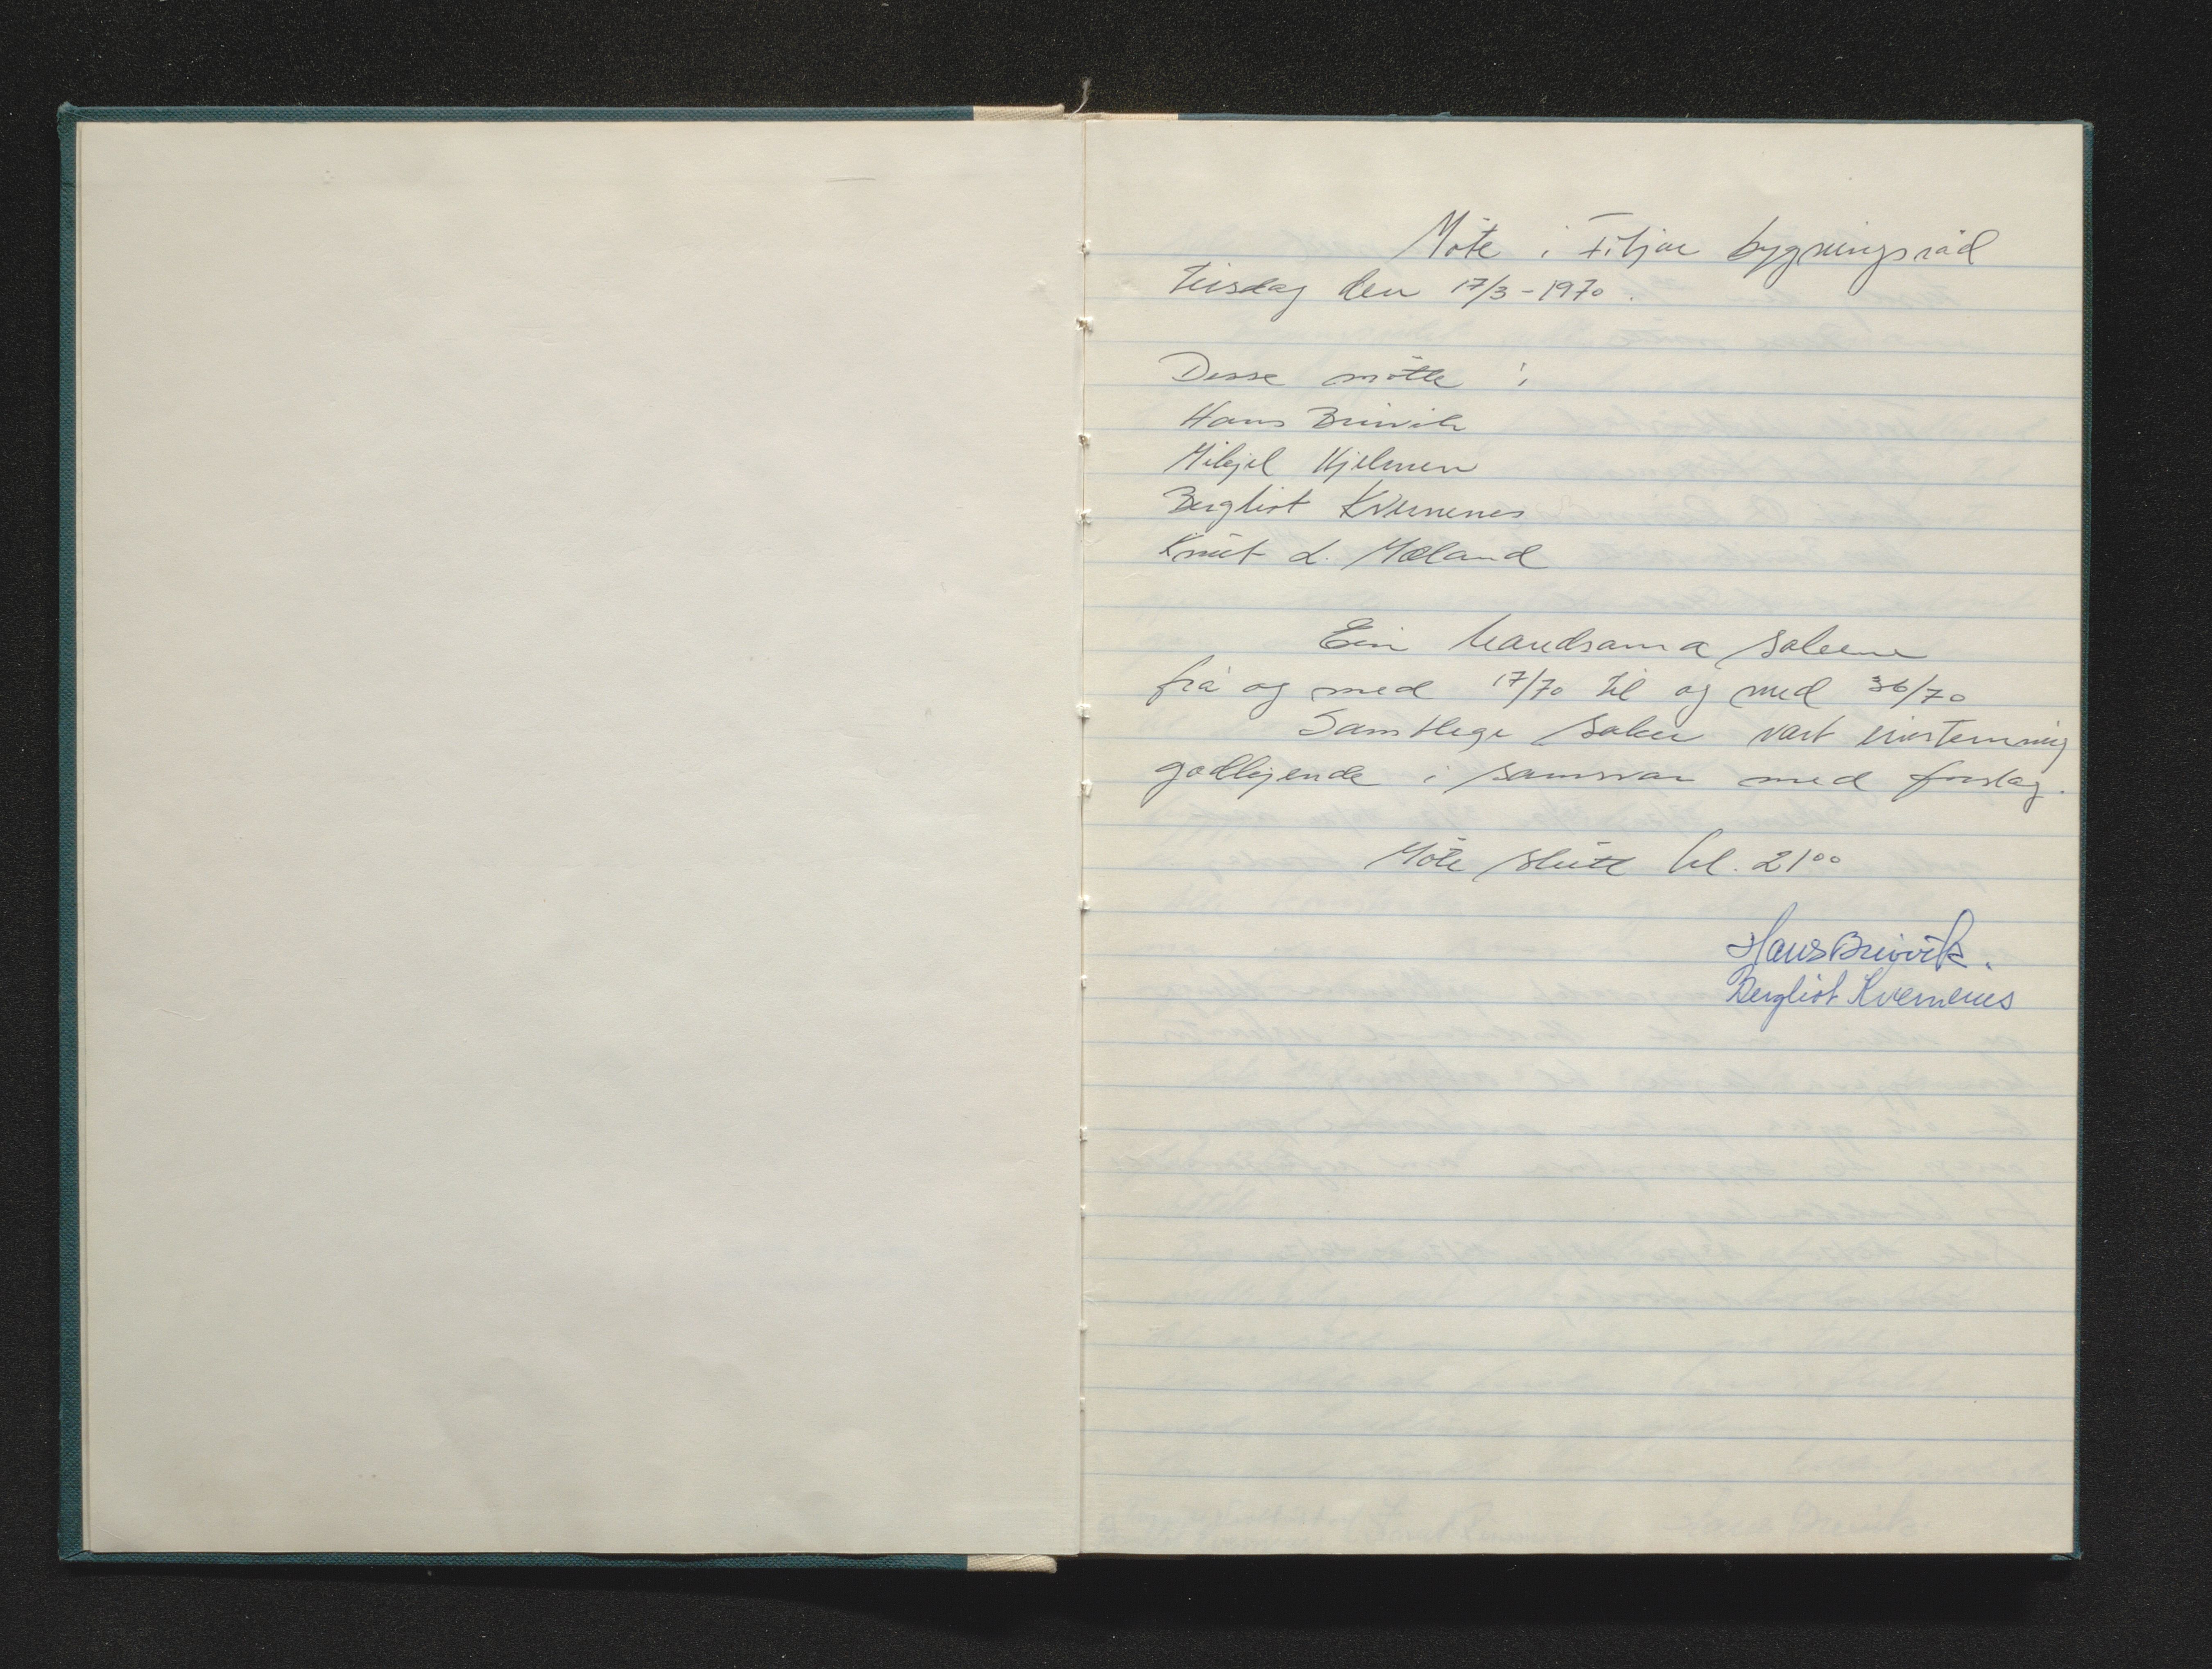 Møte i Fitjar bygningsråd
tirsdag den 17/3-1970.
Desse møtte:
Hans Breivik
Mikjel Hjelmen
Bergliot Kvernenes
Knut L. Mæland
Ein handsama sakene
frå og med 17/70 til og med 36/70
Samtlege saker vart einstemmig
godkjende i samsvar med forslag.
Møte slutt kl. 21⁰⁰
Hans Breivik.
Bergliot Kvernenes